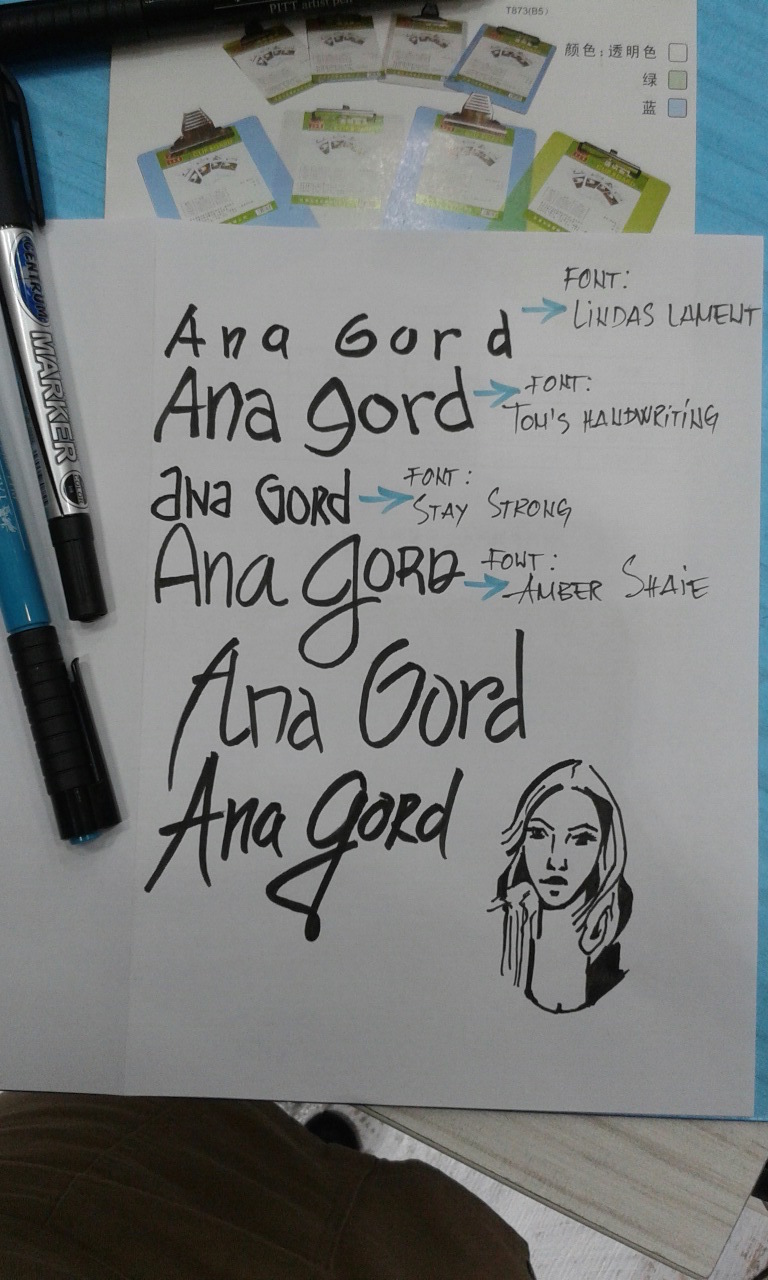 PITT artist pen
T873(B5)
颜色:透明色
绿
蓝
CENTRUM
MARKER
FONT:
Ana Gord → LINDAS LAMENT
Ana Gord → FONT:
TOM'S HANDWRITING
ana GORd → FONT:
STAY STRONG
Ana GORD → FONT:
AMBER SHAIE
Ana Gord
Ana GORd